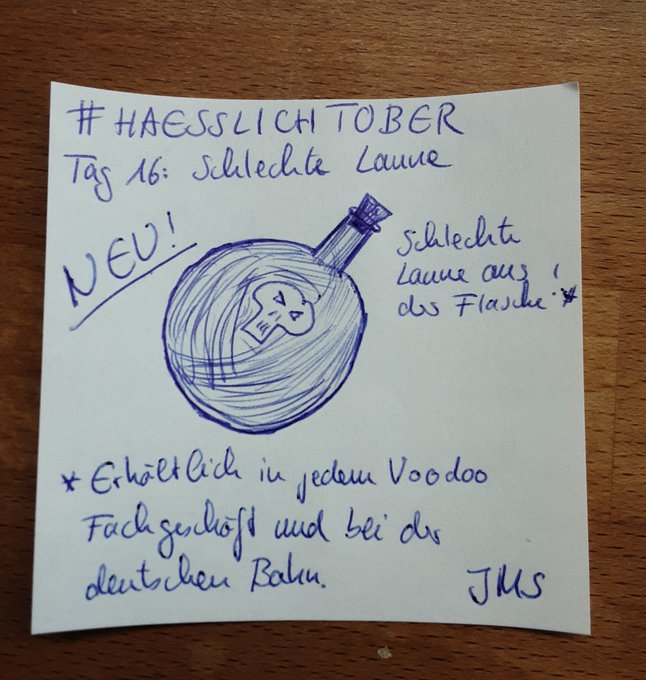 #HAESSLICHTOBER
Tag 16: Schlechte Laune
NEU!
Schlechte
Laune aus
der Flasche.*
* Erhältlich in jedem Voodoo
Fachgeschäft und bei der
deutschen Bahn.
JMS